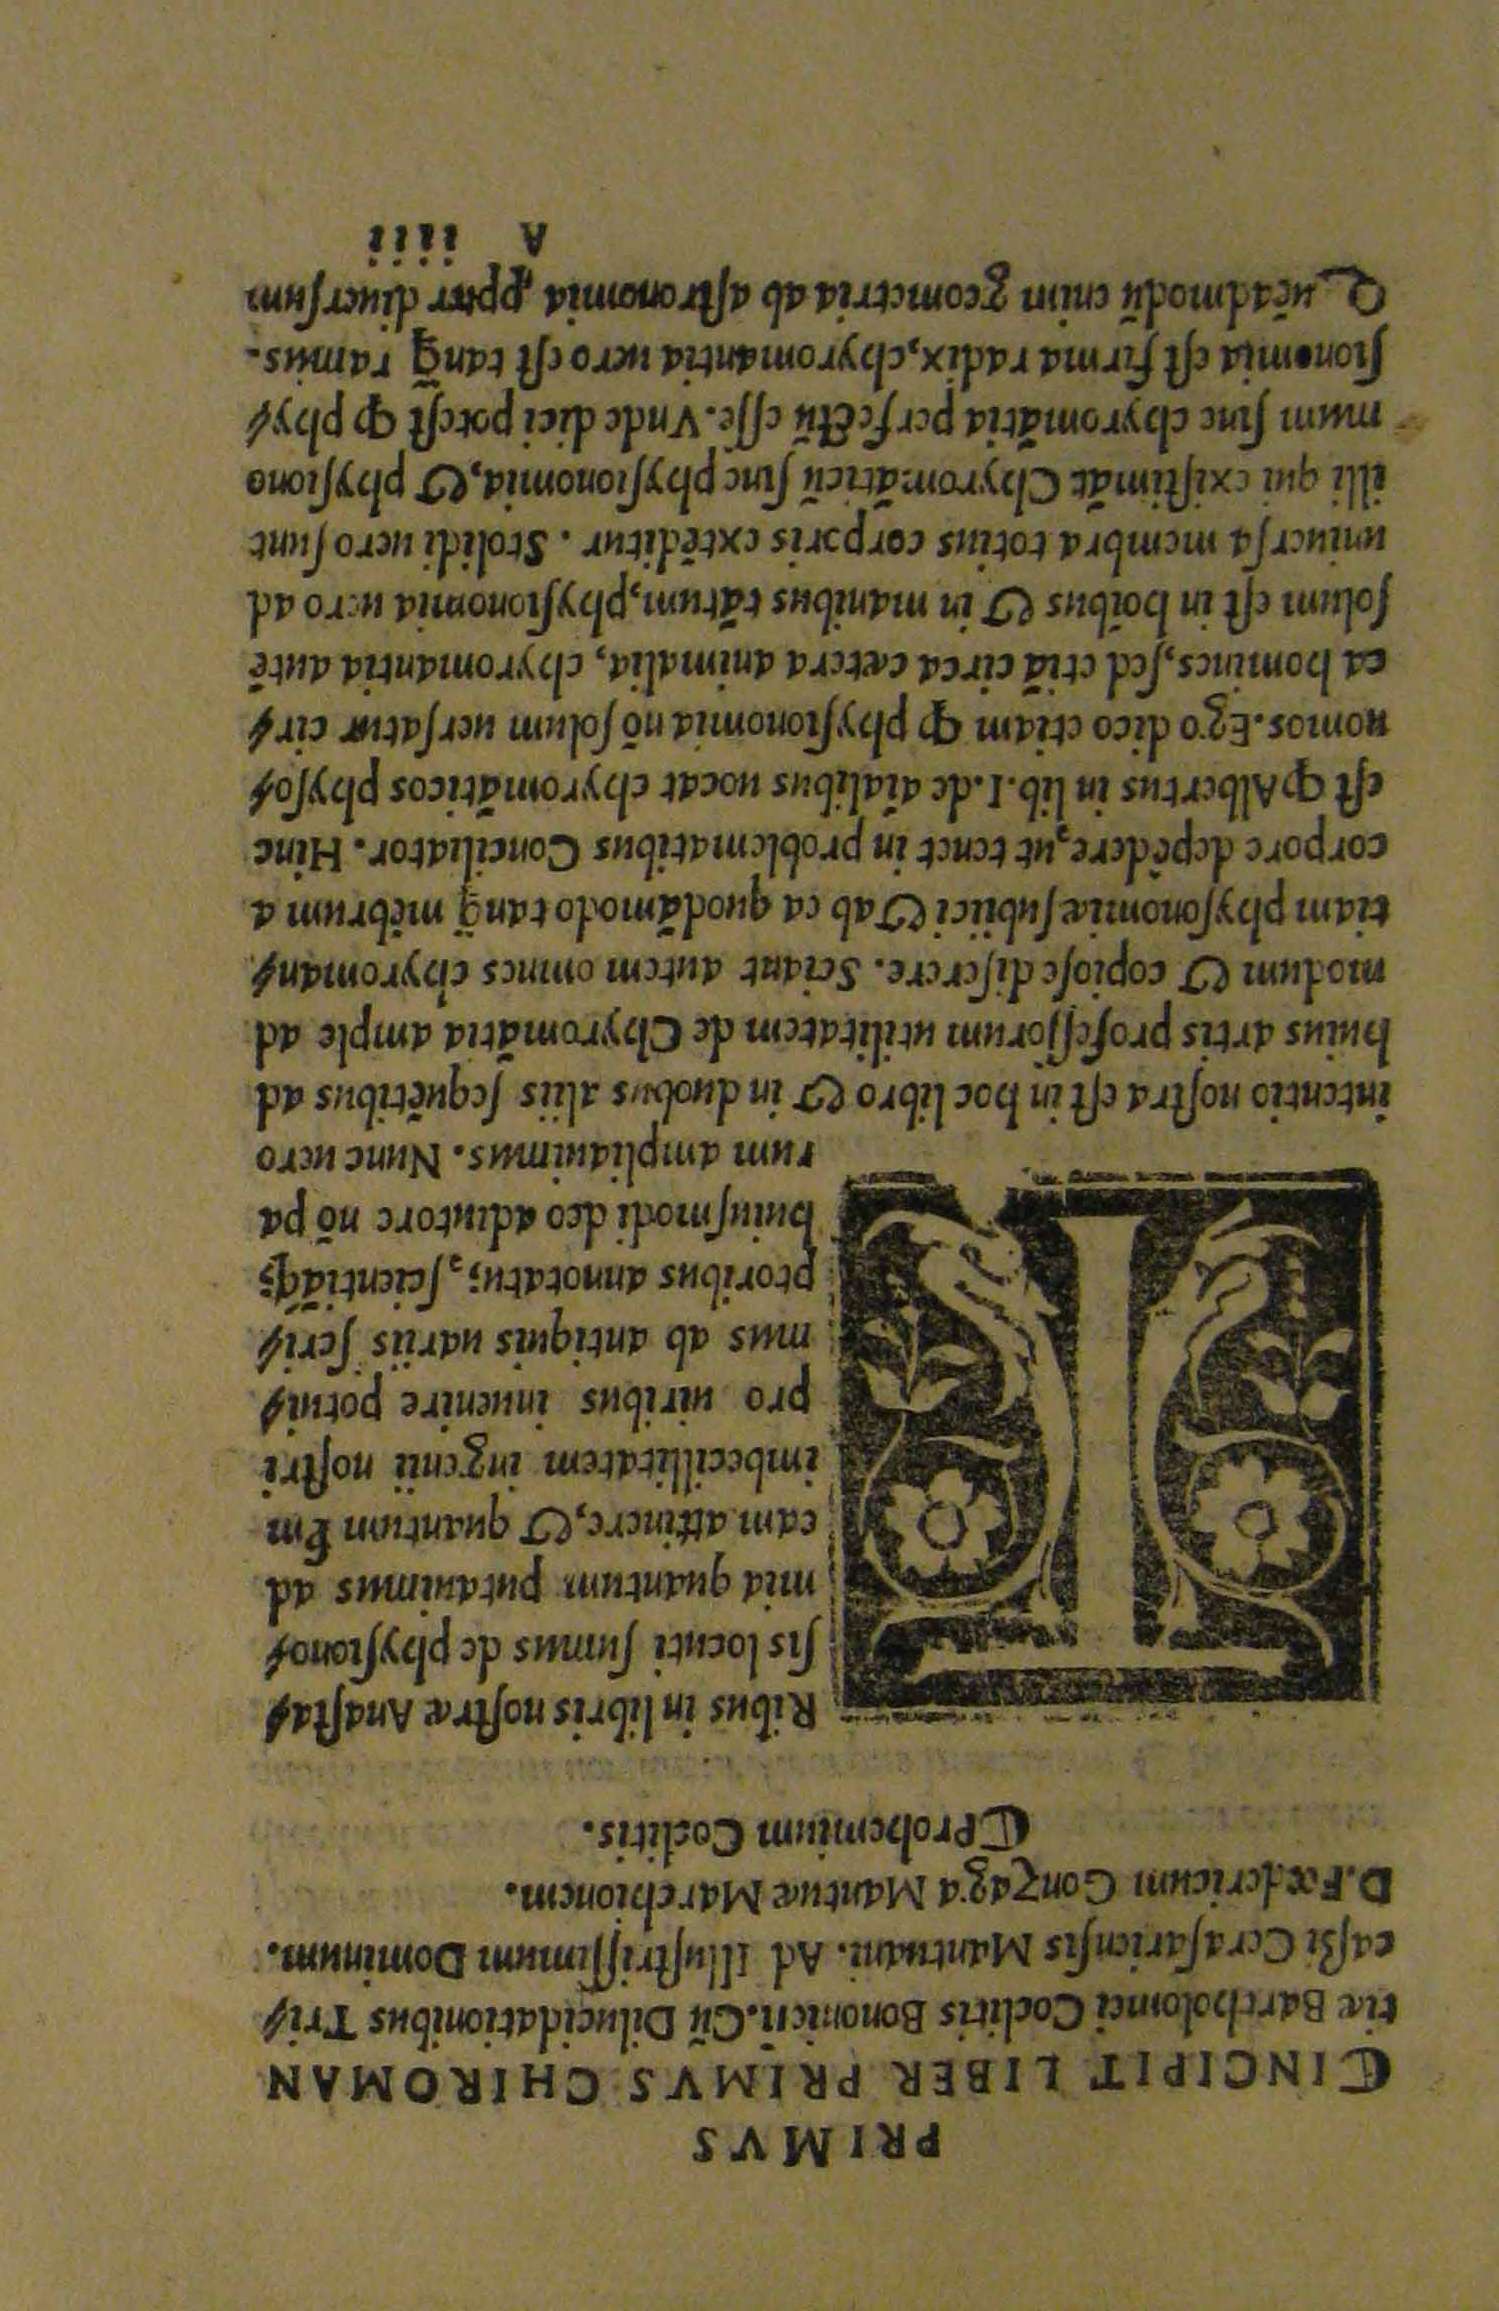 PRIMVS
❡INCIPIT LIBER PRIMVS CHIROMAN
tiæ Bartholomei Coclitis Bononieñ. Cũ Dilucidationibus Tri⸗
caßi Cerasariensis Mantuani. Ad Illuſtriſſimum Dominum.
D. Fœdericum Gonzaga Mantuæ Marchionem.
❡Prohemium Coclitis.
TRibus in libris noſtræ Anaſta⸗
ſis locuti ſumus de phyſiono⸗
mia quantum putauimus ad
eam attinere, & quantum ẜm
imbecillitatem ingenii noſtri
pro uiribus inuenire potui⸗
mus ab antiquis uariis ſcri⸗
ptoribus annotatũ, ſcientiãq;
huiuſmodi deo adiutore nõ pa
rum ampliauimus. Nunc uero
intentio noſtra eſt in hoc libro & in duobus aliis ſequẽtibus ad
huius artis profeſſorum utilitatem de Chyromãtia ample ad
modum & copioſe diſſerere. Sciant autem omnes chyroman⸗
tiam phyſonomiæ ſubiici & ab ea quodãmodo tanq̃ mẽbrum a
corpore depẽdere, ut tenet in problematibus Conciliator. Hinc
eſt ꝙ Albertus in lib. I. de aĩalibus uocat chyromãticos phyſo⸗
nomos. Ego dico etiam ꝙ phyſionomia nõ ſolum uerſatur cir⸗
ca homines, ſed etiã circa cætera animalia, chyromantia autẽ
ſolum eſt in hoĩbus & in manibus tãtum, phyſionomia uero ad
uniuerſa membra totius corporis extẽditur. Stolidi uero ſunt
illi qui exiſtimãt Chyromãticũ ſine phyſionomia, & phyſiono
mum ſine chyromãtia perfectũ eſſe. Vnde dici poteſt ꝙ phy⸗
ſionomia eſt firma radix, chyromantia uero eſt tanq̃ ramus.
Quẽadmodũ enim geometria ab aſtronomia ꝓpter diuerſum
A iiii